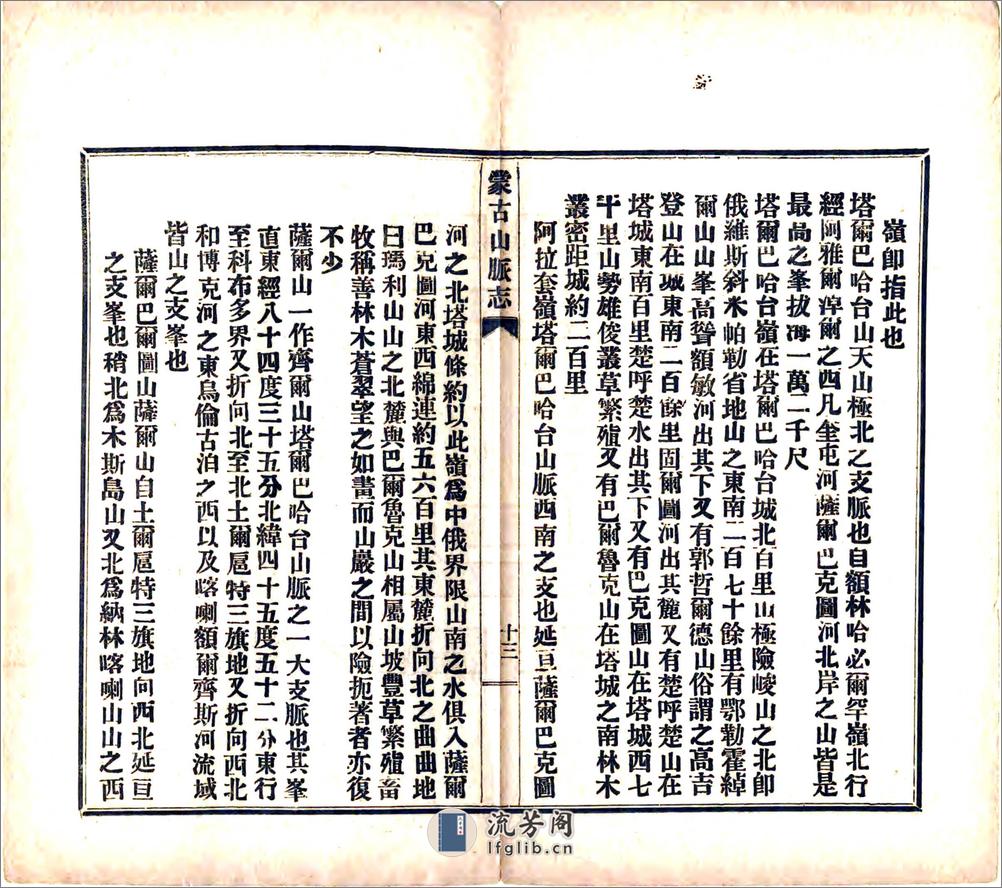 嶺卽指此也
塔爾巴哈台山天山極北之支脈也自額林哈必爾罕嶺北行
經阿雅爾淖爾之西凡奎屯河薩爾巴克圖河北岸之山皆是
最高之峯拔海一萬二千尺
塔爾巴哈台嶺在塔爾巴哈台城北百里山極險峻山之北卽
俄維斯斜米帕勒省地山之東南二百七十餘里有鄂勒霍綽
爾山山峯高聳額敏河出其下又有郭哲爾德山俗謂之高吉
登山在城東南二百餘里固爾圖河出其麓又有楚呼楚山在
塔城東南百里楚呼楚水出其下又有巴克圖山在塔城西七
十里山勢雄俊叢草繁殖又有巴爾魯克山在塔城之南林木
叢密距城約二百里
阿拉套嶺塔爾巴哈台山脈西南之支也延亘薩爾巴克圖
蒙古山脈志
十三
河之北塔城條約以此嶺爲中俄界限山南之水俱入薩爾
巴克圖河東西綿連約五六百里其東麓折向北之曲曲地
曰瑪利山山之北麓與巴爾魯克山相屬山坡豐草繁殖畜
牧稱善林木蒼翠望之如畫而山巖之間以險扼著者亦復
不少
薩爾山一作齊爾山塔爾巴哈台山脈之一大支脈也其峯
直東經八十四度三十五分北緯四十五度五十二分東行
至科布多界又折向北至北土爾扈特三旗地又折向西北
和博克河之東烏倫古泊之西以及喀喇額爾齊斯河流域
皆山之支峯也
薩爾巴爾圖山薩爾山自土爾扈特三旗地向西北延亘
之支峯也稍北爲木斯島山又北爲納林喀喇山山之西
流芳阁
lfglib.cn